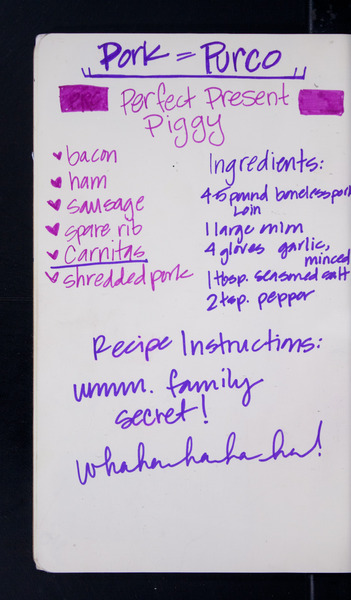 Pork = Purco
Perfect Present
Piggy
bacon
ham
sausage
spare rib
Carnitas
shredded pork
Ingredients:
4-5 pound boneless pork
Loin
1 large mim
4 gloves garlic,
minced
1 tbsp. seasmed salt
2 tsp. pepper
Recipe Instructions:
ummm. family
secret!
whahahahaha!